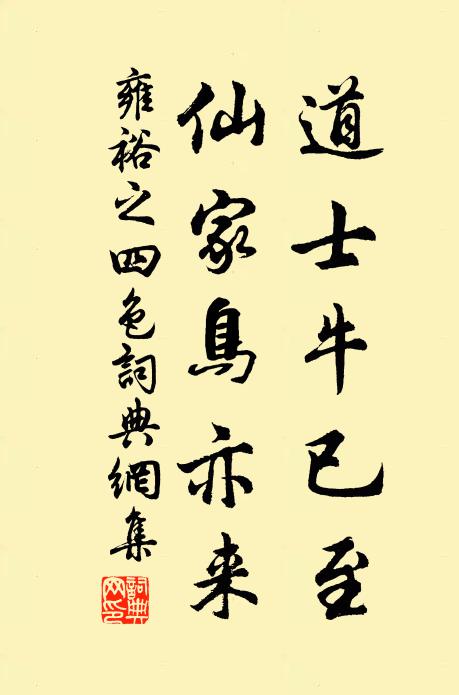 道士牛已至
仙家鳥亦来
雍裕之四色詞典網集
詞典網印